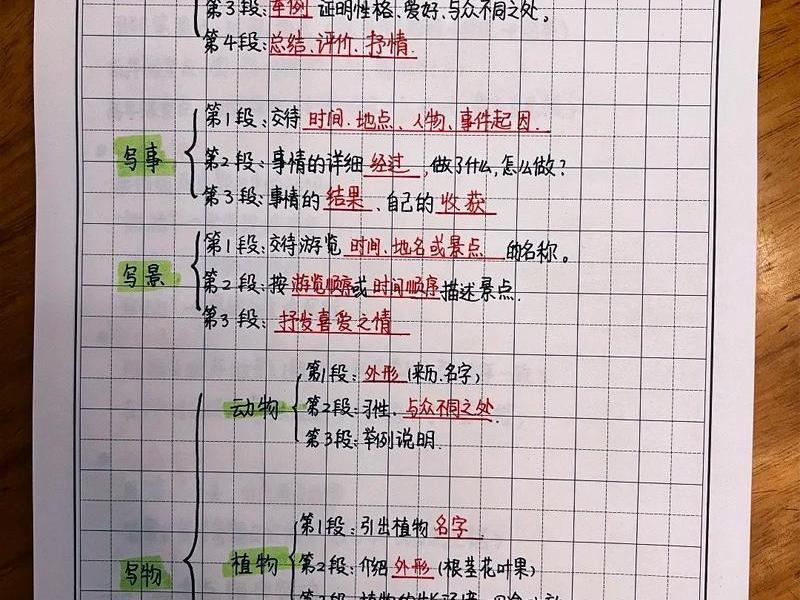 第3段:举例 证明性格、爱好、与众不同之处。
第4段:总结、评价、抒情.
写事
第1段:交待 时间、地点、人物、事件起因.
第2段:事情的详细 经过,做了什么,怎么做?
第3段:事情的 结果、自己的 收获
写景
第1段:交待游览 时间、地名或景点 的名称。
第2段:按游览顺序或时间顺序描述景点.
第3段: 抒发喜爱之情
写物
动物
第1段:外形(来历、名字)
第2段:习性、与众不同之处.
第3段:举例说明.
植物
第1段:引出植物 名字
第2段:介绍 外形(根茎花叶果)